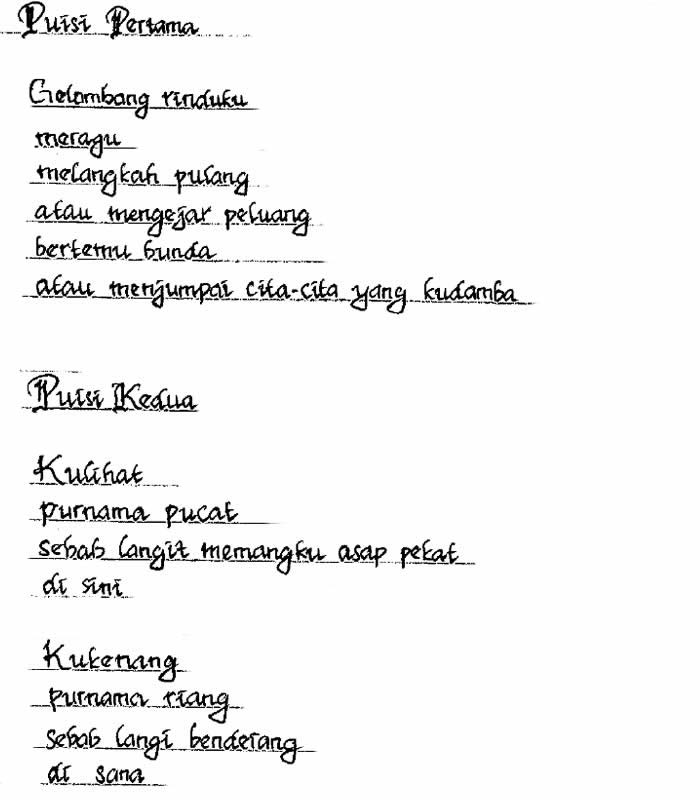 Puisi Pertama
Gelombang rinduku
meragu
melangkah pulang
atau mengejar peluang
bertemu bunda
atau menjumpai cita-cita yang kudamba
Puisi Kedua
Kulihat
purnama pucat
sebab langit memangku asap pekat
di sini
Kukenang
purnama riang
sebab langi benderang
di sana